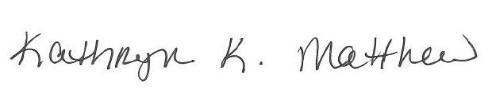 Kathryn K. Matthew